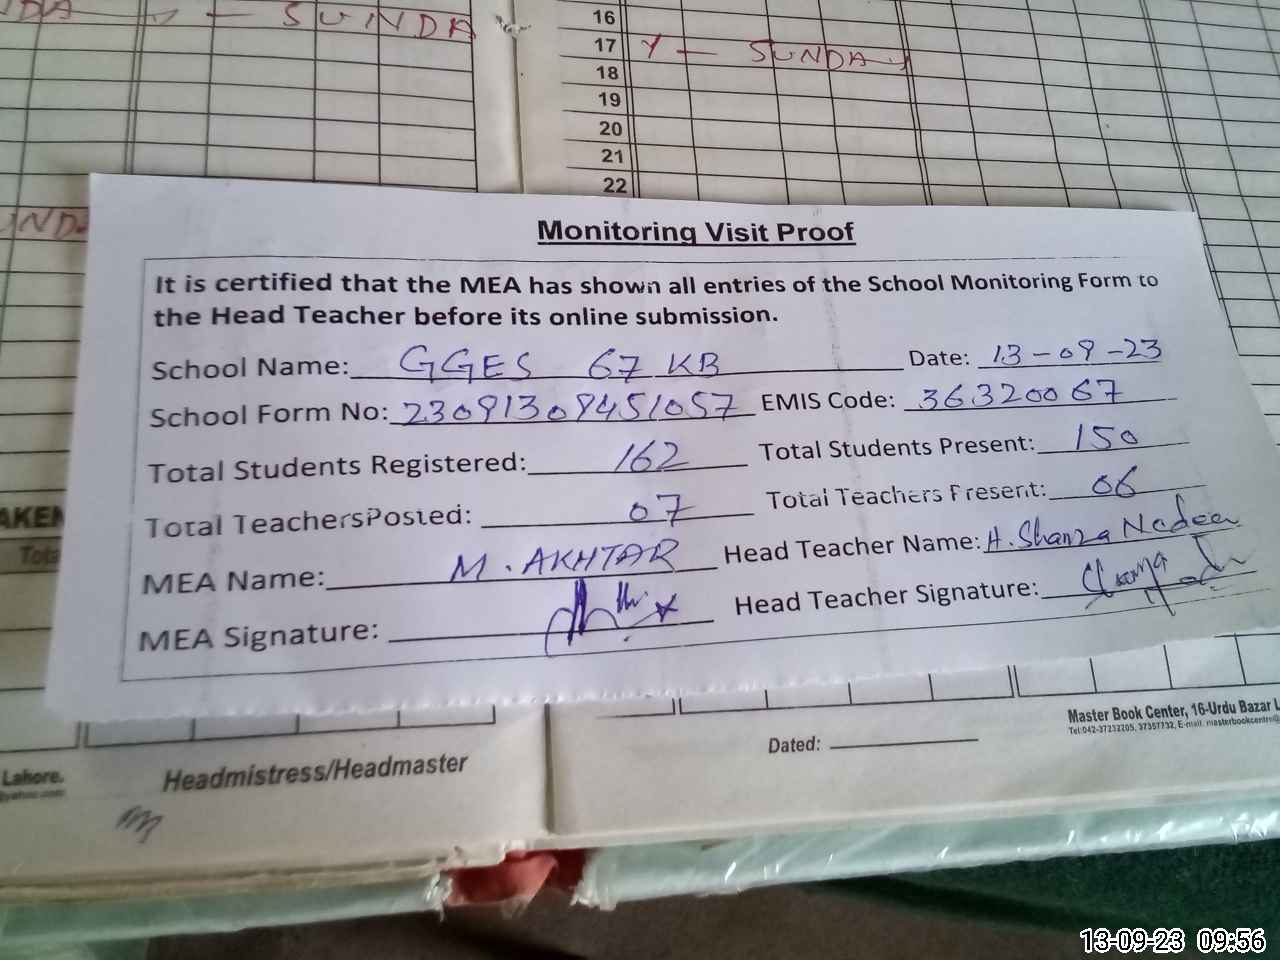 NDA Y - SUNDA
16
17 Y - SUNDAY
18
19
20
21
22
UND
Monitoring Visit Proof
It is certified that the MEA has shown all entries of the School Monitoring Form to
the Head Teacher before its online submission.
School Name: GGES 67 KB Date: 13-09-23
School Form No: 23091309451057 EMIS Code: 36320067
Total Students Registered: 162 Total Students Present: 150
Total TeachersPosted: 07 Total Teachers Present: 06
MEA Name: M. AKHTAR Head Teacher Name: H. Shanza Nadee
MEA Signature: Head Teacher Signature:
AKEN
Tota
Master Book Center, 16-Urdu Bazar L
Tel:042-37232205, 37357732, E-mail: masterbookcentre@
Dated:
Lahore.
@yahoo.com
Headmistress/Headmaster
13-09-23 09:56